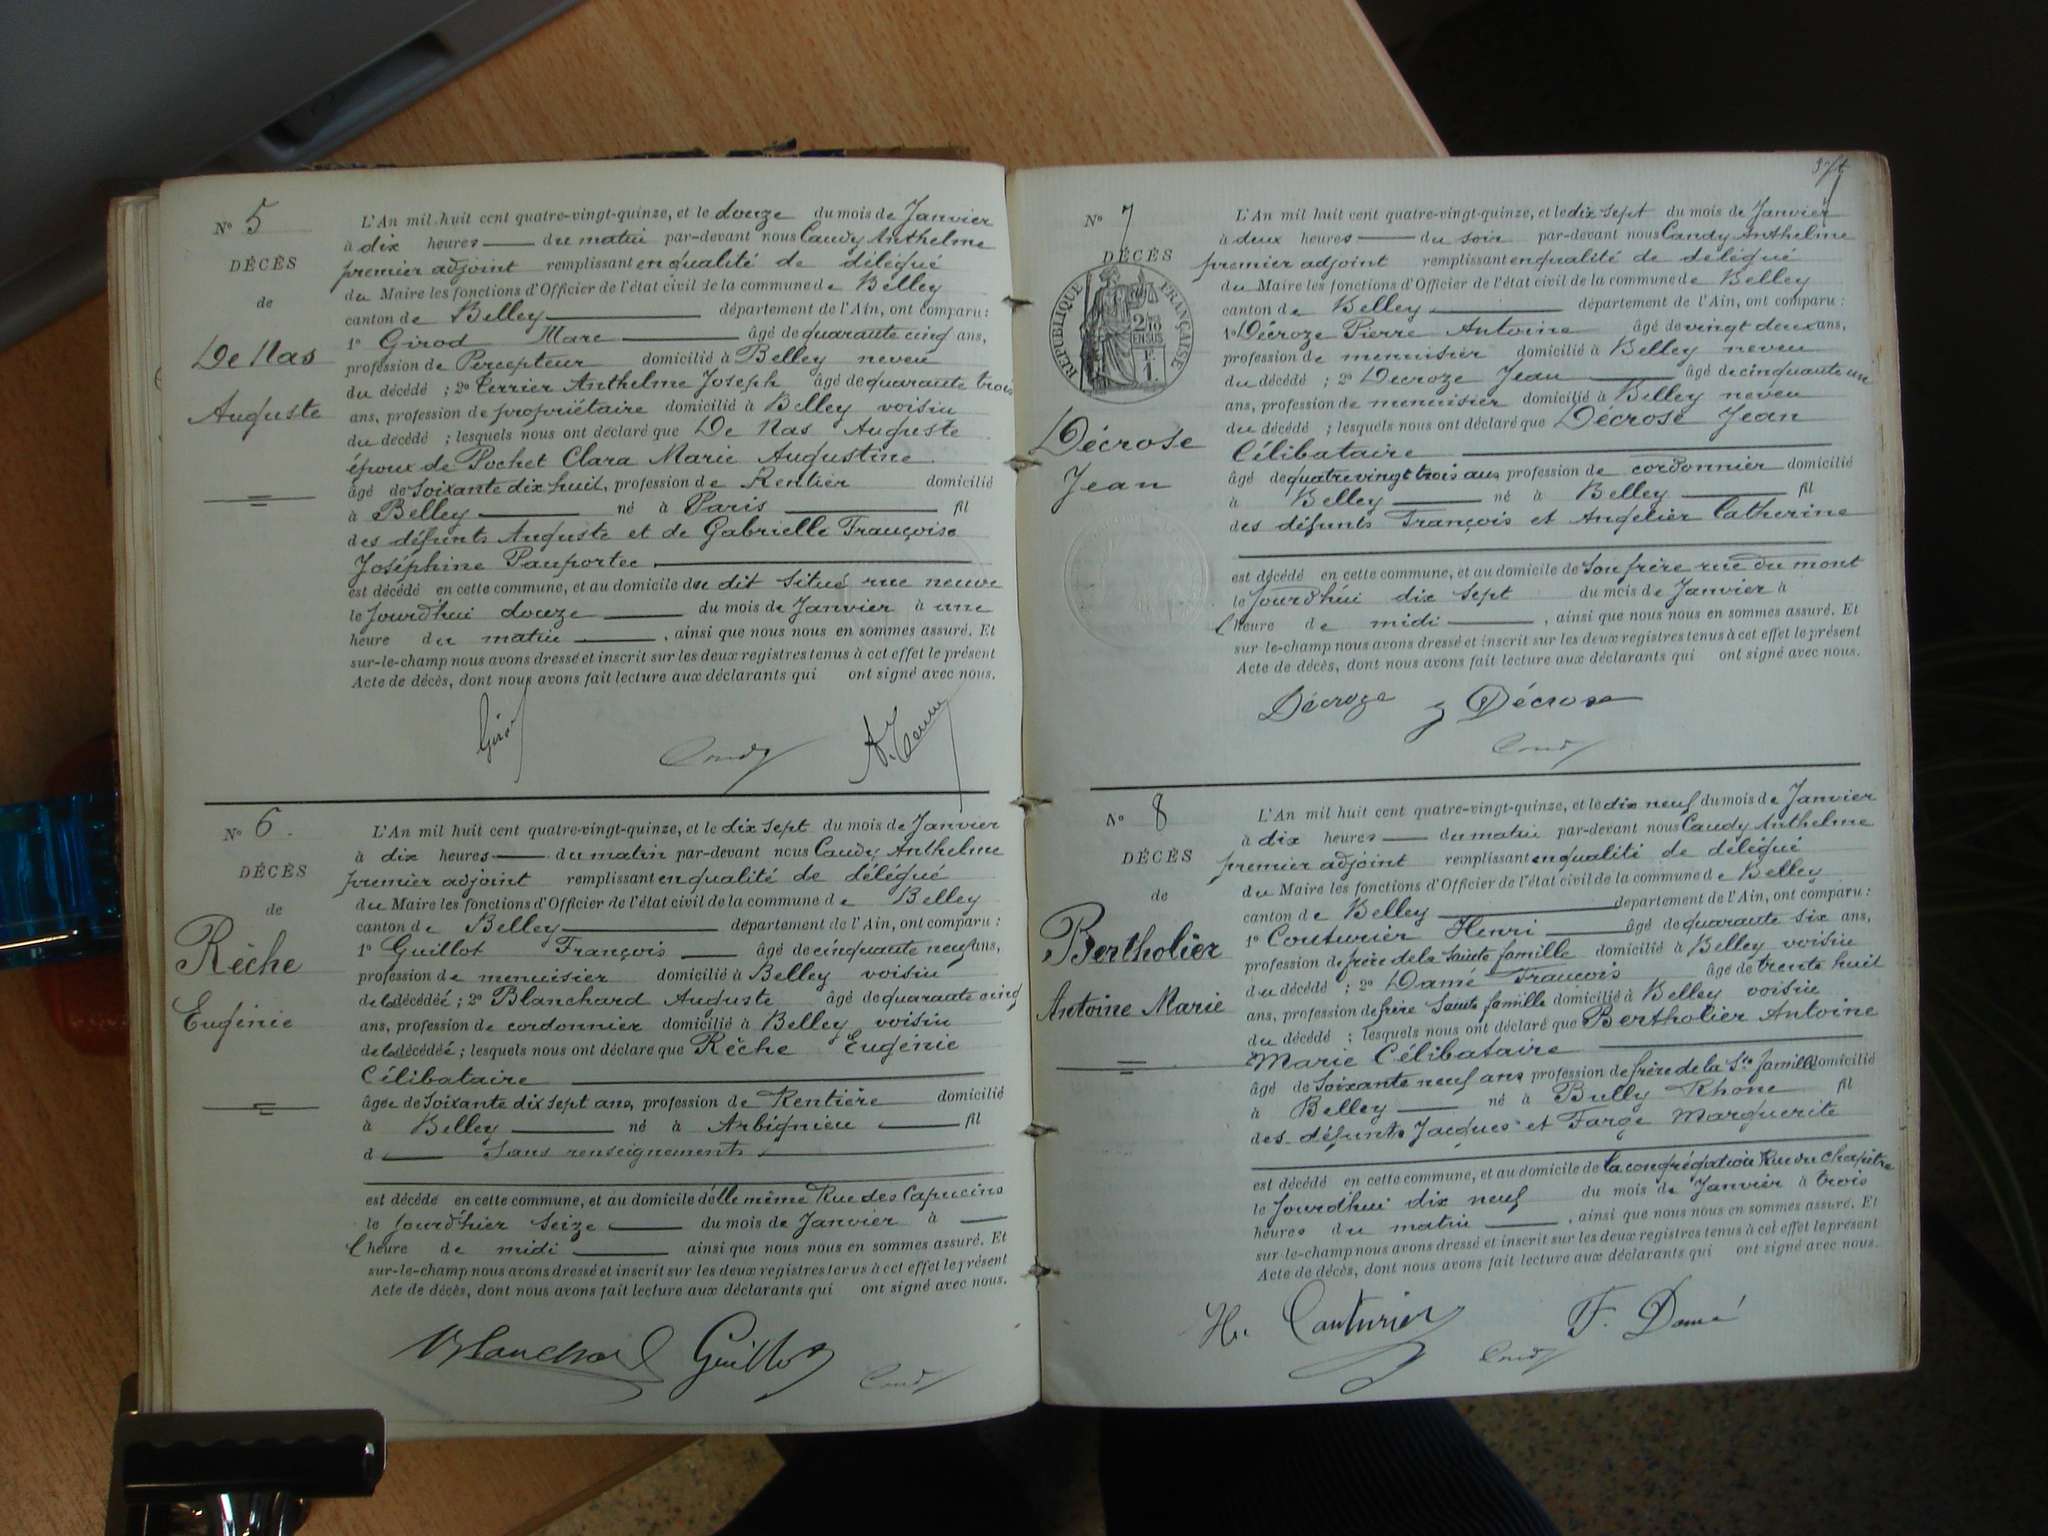 N° 5
DÉCÈS
de
De Nas
Auguste
L'An mil huit cent quatre-vingt-quinze, et le douze du mois de Janvier
à dix heures du matin par-devant nous Caudy Anthelme
premier adjoint remplissant en qualité de délégué
du Maire les fonctions d'Officier de l'état civil de la commune de Belley
canton de Belley département de l'Ain, ont comparu :
1° Girod Marc âgé de quarante cinq ans,
profession de Percepteur domicilié à Belley neveu
du décédé ; 2° Terrier Anthelme Joseph âgé de quarante trois
ans, profession de propriétaire domicilié à Belley voisin
du décédé ; lesquels nous ont déclaré que De Nas Auguste
époux de Pochet Clara Marie Augustine
âgé de soixante dix huit, profession de Rentier domicilié
à Belley né à Paris fil
des défunts Auguste et de Gabrielle Françoise
Joséphine Pauportee
est décédé en cette commune, et au domicile du dit situé rue neuve
le jourd'hui douze du mois de Janvier à une
heure du matin, ainsi que nous nous en sommes assuré. Et
sur-le-champ nous avons dressé et inscrit sur les deux registres tenus à cet effet le présent
Acte de décès, dont nous avons fait lecture aux déclarants qui ont signé avec nous.
Girod Caudy
N° 6
DÉCÈS
de
Rèche
Eugénie
L'An mil huit cent quatre-vingt-quinze, et le dix sept du mois de Janvier
à dix heures du matin par-devant nous Caudy Anthelme
premier adjoint remplissant en qualité de délégué
du Maire les fonctions d'Officier de l'état civil de la commune de Belley
canton de Belley département de l'Ain, ont comparu :
1° Guillot François âgé de cinquante neuf ans,
profession de menuisier domicilié à Belley voisin
de la décédée ; 2° Blanchard Auguste âgé de quarante cinq
ans, profession de cordonnier domicilié à Belley voisin
de la décédée ; lesquels nous ont déclaré que Rèche Eugénie
Célibataire
âgée de soixante dix sept ans, profession de Rentière domicilié
à Belley né à Arbignieu fil
d sans renseignements
est décédé en cette commune, et au domicile d'elle même Rue des Capucins
le jourd'hier seize du mois de Janvier à
l'heure de midi ainsi que nous nous en sommes assuré. Et
sur-le-champ nous avons dressé et inscrit sur les deux registres tenus à cet effet le présent
Acte de décès, dont nous avons fait lecture aux déclarants qui ont signé avec nous.
Blanchard Guillot Caudy
N° 7
DÉCÈS
RÉPUBLIQUE FRANÇAISE
2/10
EN SUS
Décrose
Jean
L'An mil huit cent quatre-vingt-quinze, et le dix sept du mois de Janvier
à deux heures du soir par-devant nous Caudy Anthelme
premier adjoint remplissant en qualité de délégué
du Maire les fonctions d'Officier de l'état civil de la commune de Belley
canton de Belley département de l'Ain, ont comparu :
1° Décroze Pierre Antoine âgé de vingt deux ans,
profession de menuisier domicilié à Belley neveu
du décédé ; 2° Decroze Jean âgé de cinquante un
ans, profession de menuisier domicilié à Belley neveu
du décédé ; lesquels nous ont déclaré que Décrose Jean
Célibataire
âgé de quatre vingt trois ans profession de cordonnier domicilié
à Belley né à Belley fil
des défunts François et Angelier Catherine
est décédé en cette commune, et au domicile de son frère rue du mont
le jourd'hui dix sept du mois de Janvier à
l'heure de midi, ainsi que nous nous en sommes assuré. Et
sur-le-champ nous avons dressé et inscrit sur les deux registres tenus à cet effet le présent
Acte de décès, dont nous avons fait lecture aux déclarants qui ont signé avec nous.
Décroze Décrose
Caudy
N° 8
DÉCÈS
de
Bertholier
Antoine Marie
L'An mil huit cent quatre-vingt-quinze, et le dix neuf du mois de Janvier
à dix heures du matin par-devant nous Caudy Anthelme
premier adjoint remplissant en qualité de délégué
du Maire les fonctions d'Officier de l'état civil de la commune de Belley
canton de Belley département de l'Ain, ont comparu :
1° Couturier Henri âgé de quarante six ans,
profession de frère de la Sainte famille domicilié à Belley voisin
du décédé ; 2° Damé Francois âgé de trente huit
ans, profession de frère Sainte famille domicilié à Belley voisin
du décédé ; lesquels nous ont déclaré que Bertholier Antoine
Marie Célibataire
âgé de soixante neuf ans profession de frère de la Ste famille domicilié
à Belley né à Bully Rhône fil
des défunts Jacques et Farge Marguerite
est décédé en cette commune, et au domicile de la congrégation Rue du Chapitre
le jourd'hui dix neuf du mois de Janvier à trois
heures du matin, ainsi que nous nous en sommes assuré. Et
sur-le-champ nous avons dressé et inscrit sur les deux registres tenus à cet effet le présent
Acte de décès, dont nous avons fait lecture aux déclarants qui ont signé avec nous.
Hri Couturier F. Damé
Caudy